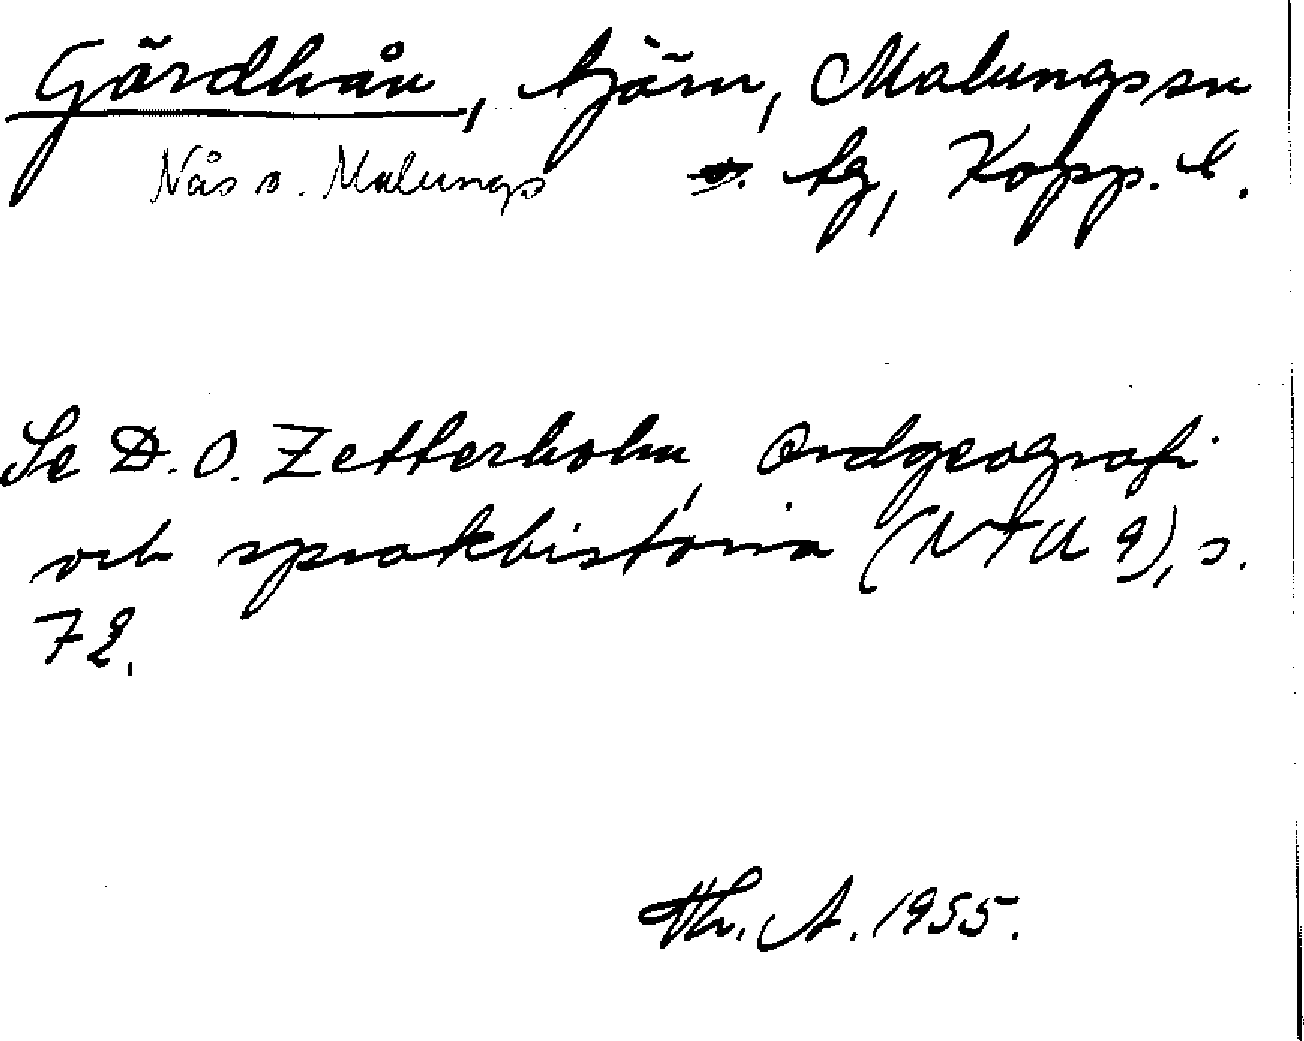 Gärdhån, tjärn, Malungs sn
Nås o. Malungs tg, Kopp. l.
Se D. O. Zetterholm, Ordgeografi
och språkhistoria (NTU 9), s.
72.
Th. A. 1955.